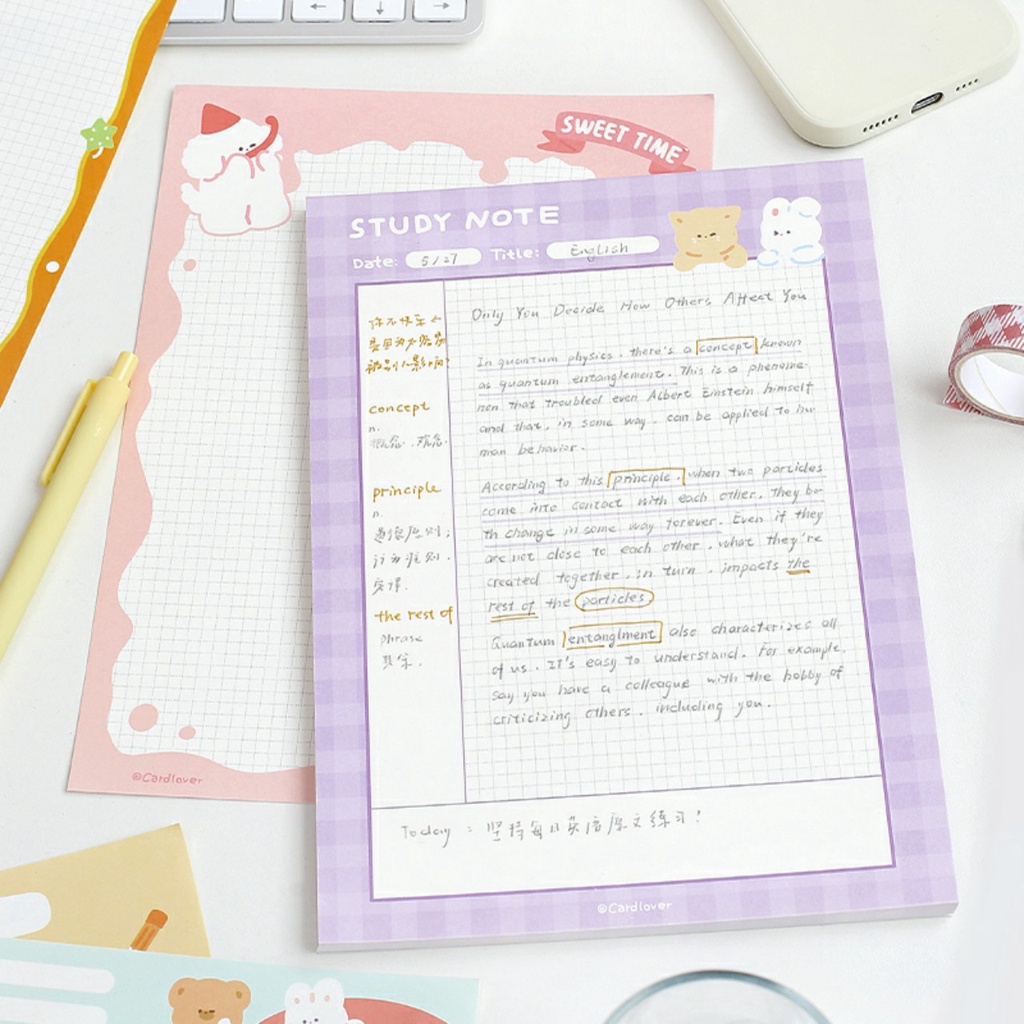 SWEET TIME
STUDY NOTE
Date: 5/27 Title: English
你不快乐
是因为太容易
被别人影响?
concept
n.
概念.观念.
principle
n.
道德原则;
行为准则.
定律.
the rest of
phrase
其余.
Only You Decide How Others Affect You
In quantum physics, there's a concept known
as quantum entanglement. This is a phenome-
non that troubled even Albert Einstein himself
and that, in some way, can be applied to hu
man behavior.
According to this principle, when two particles
come into contact with each other, they bo-
th change in some way forever. Even if they
are not close to each other, what they're
created together, in turn, impacts the
rest of the particles
Quantum entanglment also characterizes all
of us. It's easy to understand. For example,
say you have a colleague with the hobby of
criticizing others, including you.
Today: 坚持每日英语原文练习!
©Cardlover
©Cardlover